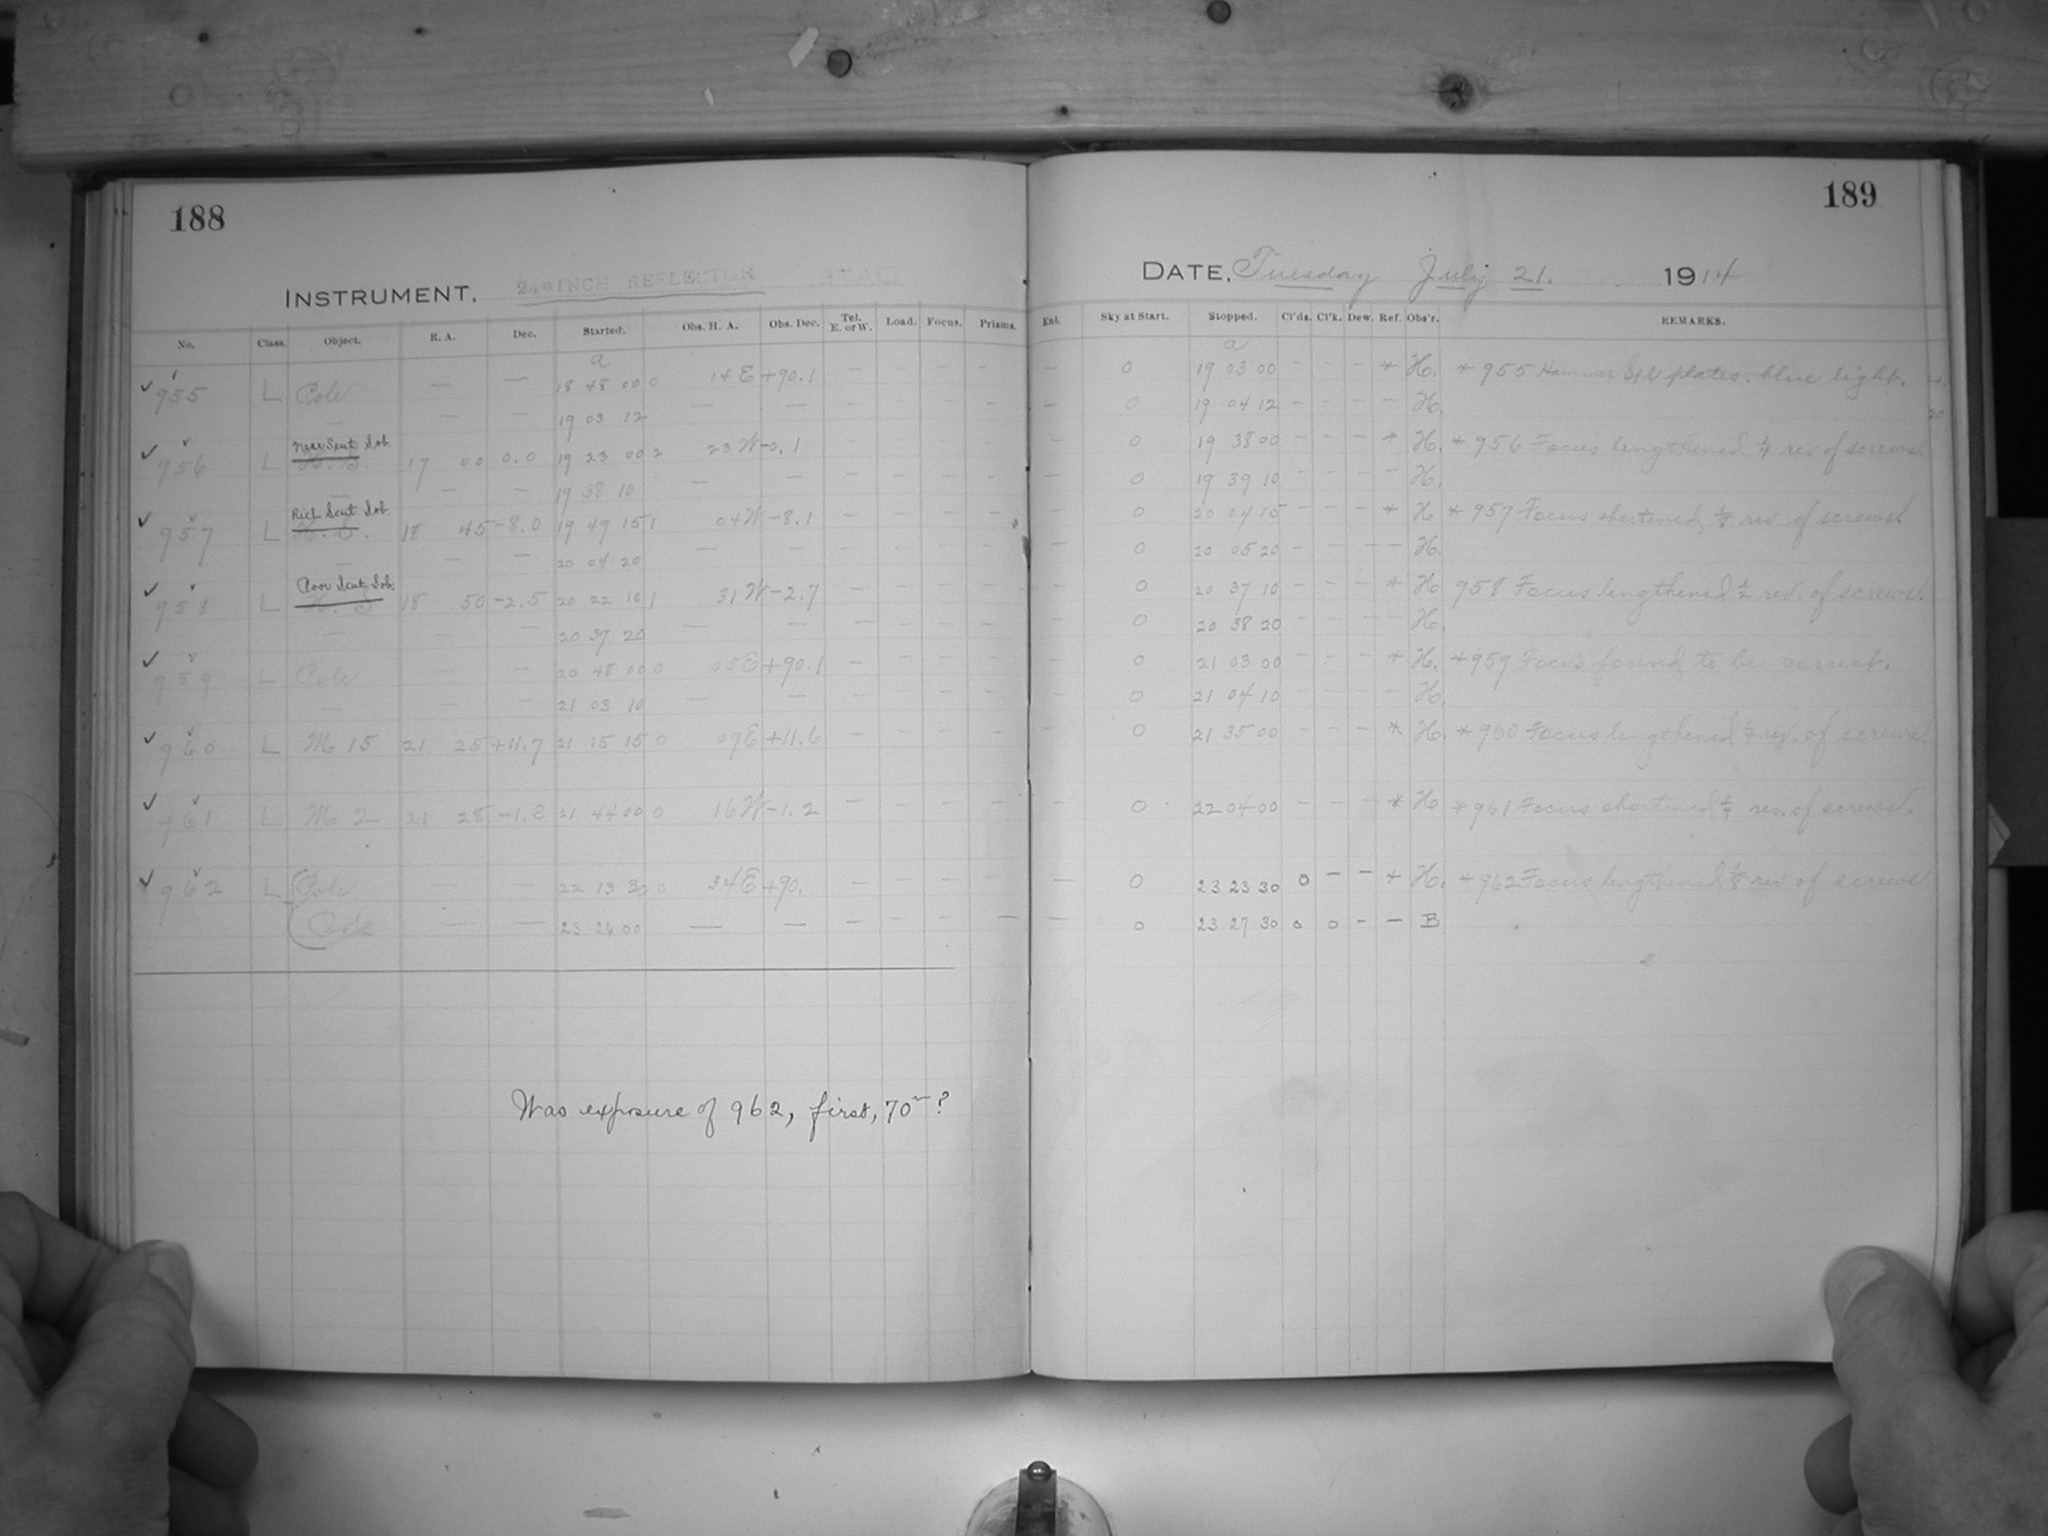 188
INSTRUMENT. 24-INCH REFLECTOR
No. Class. Object. R. A. Dec. Started. Obs. H. A. Obs. Dec. Tel. E. or W. Load. Focus. Prisms.
a
✓ 955 L Pole — — 18 48 00 0 14 E +90.1 — — — —
— — 19 03 12 — — — — — —
✓ 956 L Near Scut. Sob. 17 00 0.0 19 23 00 2 23 W -0.1 — — — —
— — — 19 38 10 — — — — — —
✓ 957 L Rich Scut. Sob. 18 45 -8.0 19 49 15 1 04 W -8.1 — — — —
— — — 20 04 20 — — — — — —
✓ 958 L Poor Scut. Sob. 18 50 -2.5 20 22 10 1 31 W -2.7 — — — —
— — — 20 37 20 — — — — — —
✓ 959 L Pole — — 20 48 00 0 05 E +90.1 — — — —
— — — 21 03 10 — — — — — —
✓ 960 L M 15 21 25 +11.7 21 15 15 0 09 E +11.6 — — — —
✓ 961 L M 2 21 28 -1.3 21 44 00 0 16 W -1.2 — — — —
✓ 962 L Pole — — 22 13 30 0 34 E +90. — — — —
Pole — — 23 26 00 — — — — — —
Was exposure of 962, first, 70m?
189
DATE, Tuesday July 21. 1914
Enl. Sky at Start. Stopped. Cl'ds. Cl'k. Dew. Ref. Obs'r. REMARKS.
a
— 0 19 03 00 — — — * H. * 955 Hammer plates. blue light.
— 0 19 04 12 — — — — H.
— 0 19 38 00 — — — * H. * 956 Focus lengthened 1/4 rev of screws.
— 0 19 39 10 — — — — H.
— 0 20 04 15 — — — * H * 957 Focus shortened 1/8 rev. of screws.
— 0 20 05 20 — — — — H.
— 0 20 37 10 — — — * H 958 Focus lengthened 1/2 rev. of screws.
— 0 20 38 20 — — — — H.
— 0 21 03 00 — — — * H. * 959 Focus found to be correct.
— 0 21 04 10 — — — — H.
— 0 21 35 00 — — — * H. * 960 Focus lengthened rev. of screws.
— 0 22 04 00 — — — * H * 961 Focus shortened 1/4 rev. of screws.
— 0 23 23 30 0 — — * H. * 962 Focus lengthened 1/8 rev of screws
— 0 23 27 30 0 0 — — B